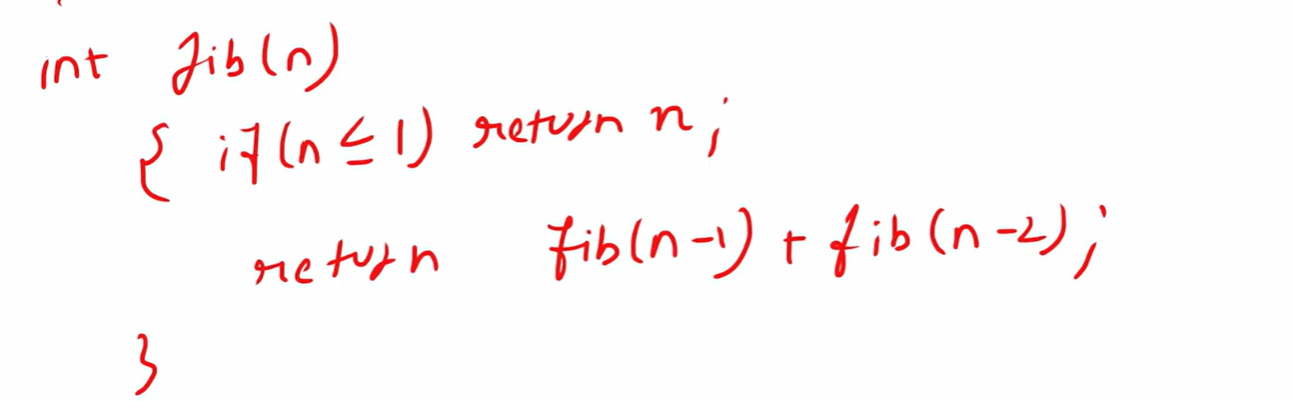 int fib(n)
{ if(n ≤ 1) return n;
return fib(n-1) + fib(n-2);
}